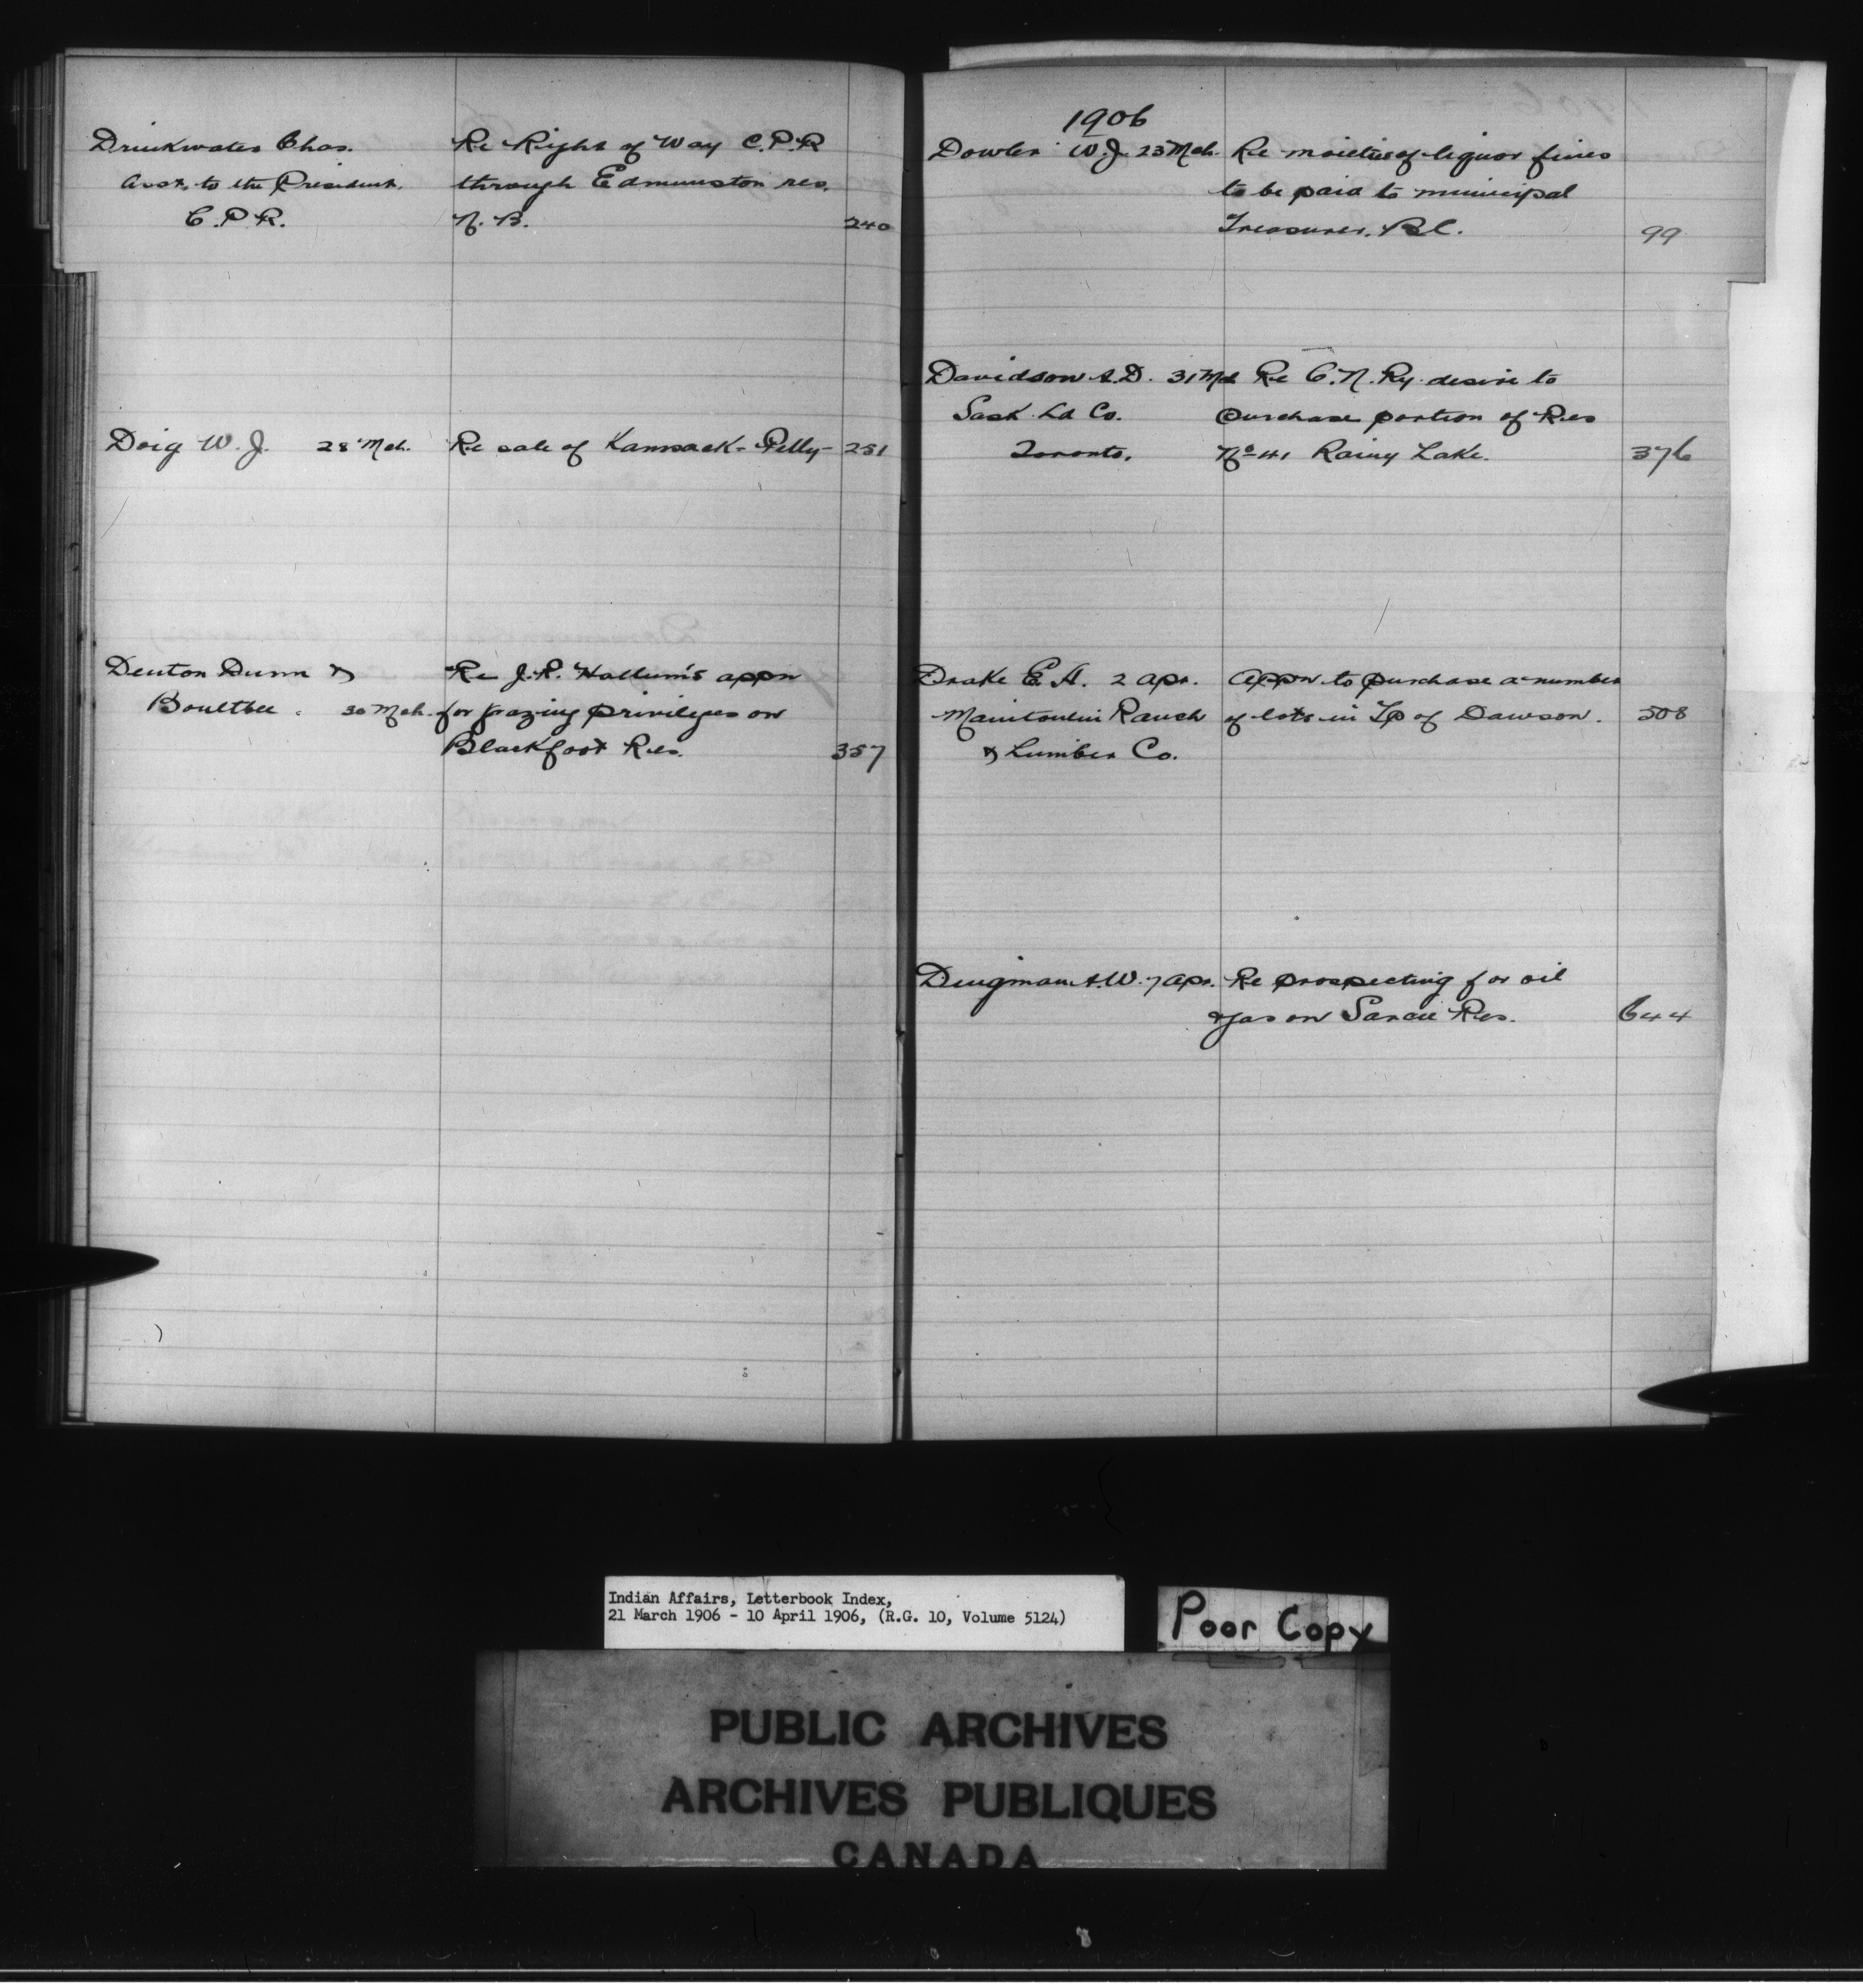 Drinkwater Chas. Re Right of Way C.P.R
Asst. to the President. through Edmunston res.
C.P.R. N.B. 240
Doig W.J. 28 Mch. Re sale of Kamsack-Pelly- 251
Denton Dunn & Re J.R. Hallum's appn
Boultbee. 30 Mch. for grazing privileges on
Blackfoot Res. 357
1906
Dowler W.J. 23 Mch. Re moieties of liquor fines
to be paid to municipal
Treasurer, B.C. 99
Davidson A.D. 31 Mch Re C.N. Ry. desire to
Sask. Ld Co. purchase portion of Res
Toronto. No 41 Rainy Lake. 376
Drake E.A. 2 Apr. Appn to purchase a number
Manitoulin Ranch of lots in Tp of Dawson. 508
& Lumber Co.
Dingman A.W. 7 Apr. Re prospecting for oil
& gas on Sarcee Res. 644
Indian Affairs, Letterbook Index,
21 March 1906 - 10 April 1906, (R.G. 10, Volume 5124)
Poor Copy
PUBLIC ARCHIVES
ARCHIVES PUBLIQUES
CANADA